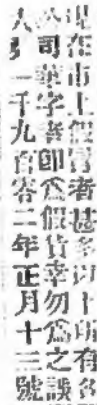 現在市上假冒者甚多以上印有各
公司華字者即爲假貨幸勿爲之誤
人引一千九百零二年正月十三號